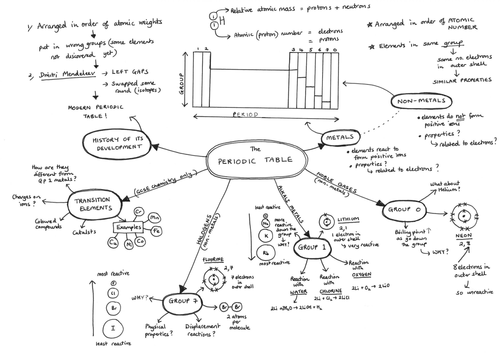 1, Arranged in order of atomic weights
put in wrong groups (some elements
not discovered yet)
2, Dmitri Mendeleev → LEFT GAPS
→ Swapped some
round (isotopes)
MODERN PERIODIC
TABLE!
HISTORY OF ITS
DEVELOPMENT
Relative atomic mass = protons + neutrons
1
H
1
Atomic (proton) number = electrons
= protons
1 2
3 4 5 6 7 0
GROUP
PERIOD
* Arranged in order of ATOMIC
NUMBER
* Elements in same group
same no. electrons
in outer shell
SIMILAR PROPERTIES
NON-METALS
• elements do not form
positive ions
• properties?
↳ related to electrons?
METALS
• elements react to
form positive ions
• properties?
↳ related to electrons?
The
PERIODIC TABLE
(GCSE chemistry only)
TRANSITION
ELEMENTS
How are they
different from
GP 1 metals?
Charges on
ions?
Coloured
compounds
Catalysts
Examples
Cr
Mn
Fe
Co
Ni
Cu
HALOGENS
(non-metals)
GROUP 7
FLUORINE
2,7
7 electrons
in outer
shell
Br Br
2 atoms
per
molecule
Displacement
reactions?
Physical
properties?
WHY?
most reactive
F
Cl
Br
I
least reactive
ALKALI METALS
GROUP 1
least reactive
Li
Na
K
Rb
most reactive
More
reactive
down the
group
↳ WHY?
LITHIUM
2,1
1 electron in
outer shell
↳ very reactive
Reaction
with
WATER
Reaction
with
CHLORINE
Reaction
with
OXYGEN
NOBLE GASES
(non-metals)
GROUP 0
What about
Helium?
Boiling point ↑
as go down
the group
↳ WHY?
NEON
2,8
8 electrons in
outer shell
so unreactive